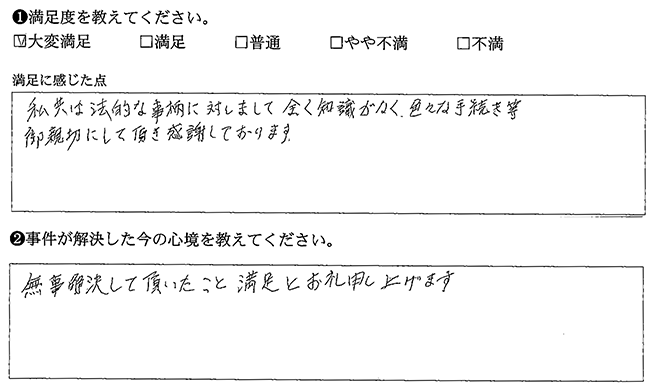 ❶満足度を教えてください。
☑大変満足 □満足 □普通 □やや不満 □不満
満足に感じた点
私共は法的な事柄に対しまして全く知識がなく、色々な手続き等
御親切にして頂き感謝しております。
❷事件が解決した今の心境を教えてください。
無事解決して頂いたこと満足とお礼申し上げます